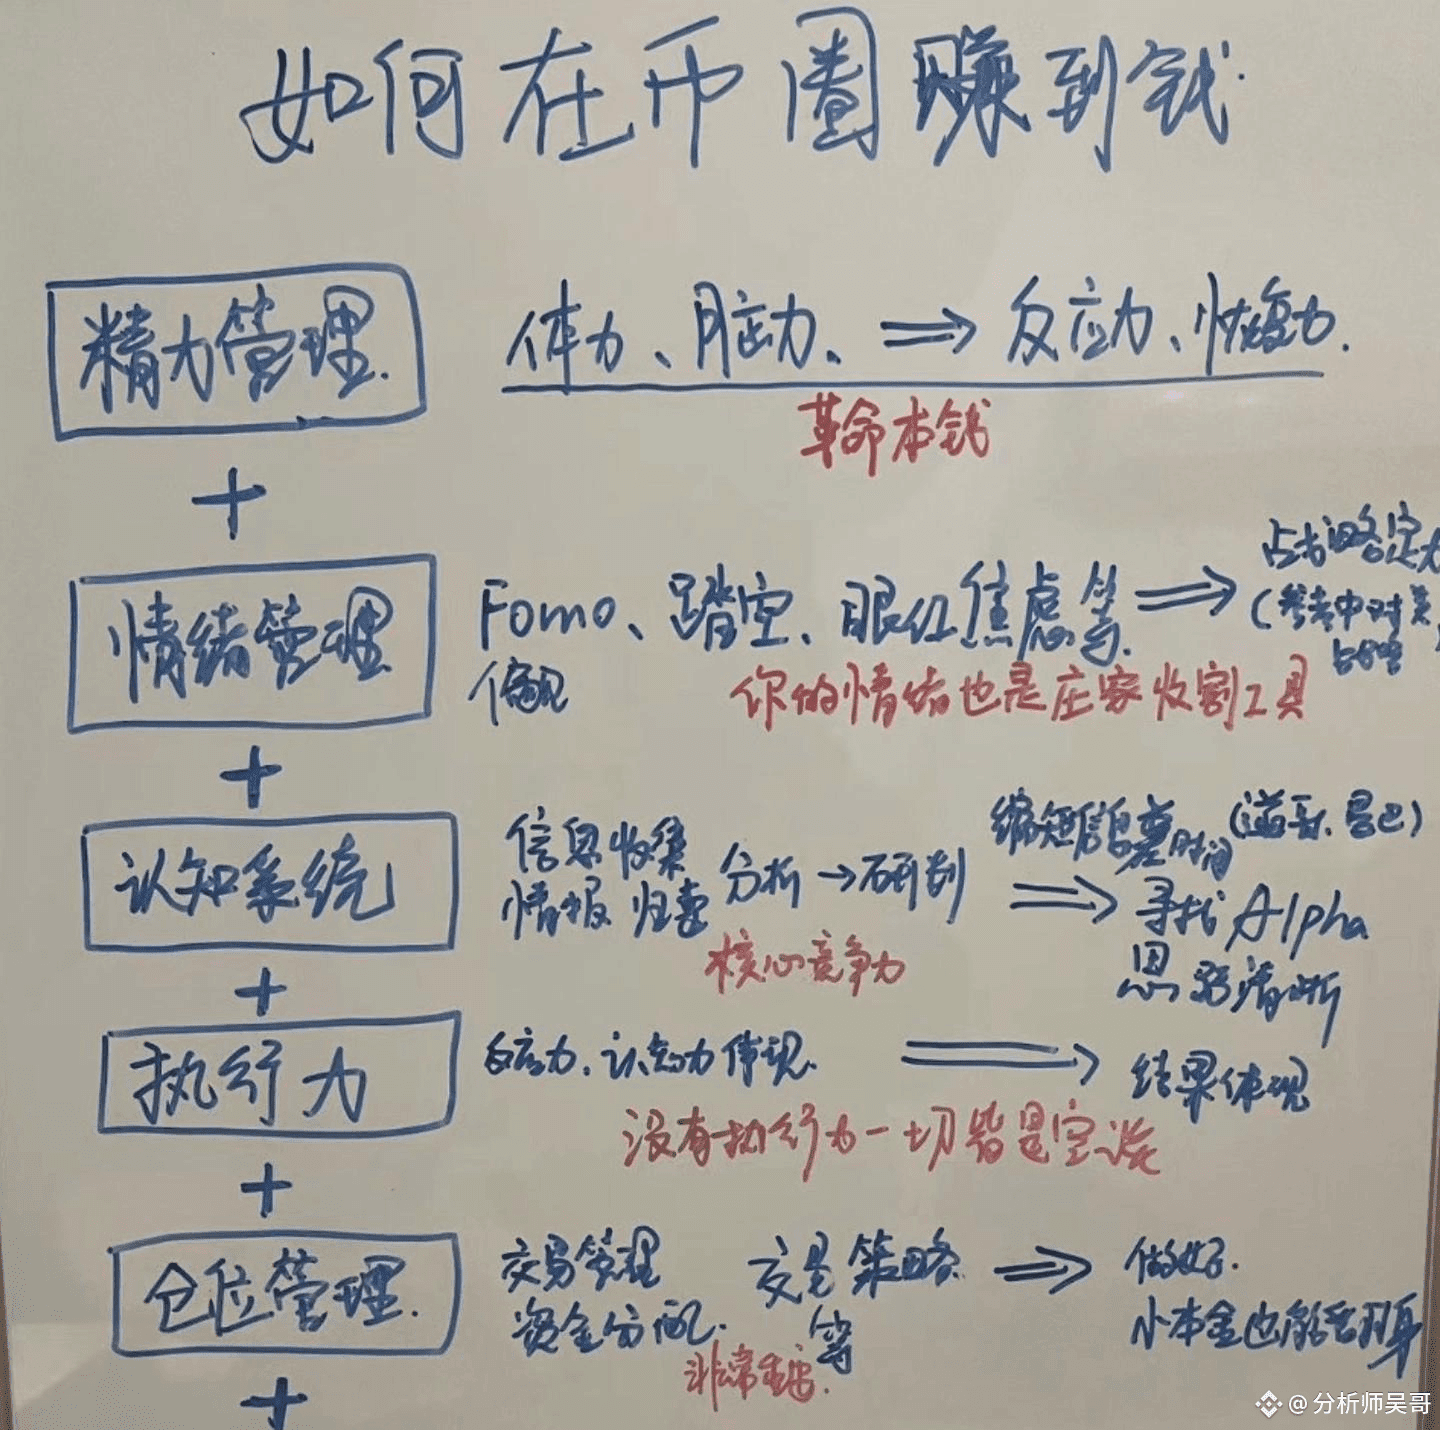 如何在币圈赚到钱.
精力管理.
体力、脑力、⇒反应力、恢复力.
革命本钱
+
情绪管理
Fomo、踏空、眼红焦虑等.⇒
偏见
战略定力
(参考中对美
战略)
你的情绪也是庄家收割工具
+
认知系统
信息收集
情报归素
分析→研判
⇒
缩短信息差时间
寻找Alpha
思路清晰
核心竞争力
+
执行力
反应力、认知力体现.⇒结果体现
没有执行力一切皆是空谈
+
仓位管理.
交易管理
资金分配.
交易策略
等
⇒
做好.
小本金也能翻身
非常重要.
+
@分析师吴哥